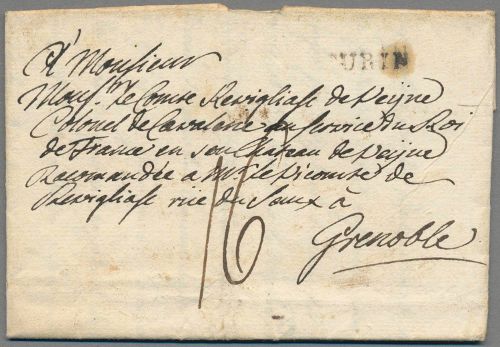 A Monsieur
TURIN
Mons.r le Comte Revigliasc de Veijne
Colonel de Cavalerie au service du Roi
de France en son Chateau de Veijne
Recomandée a Mr le Vicomte de
Revigliasc rue du Saux à
Grenoble
16